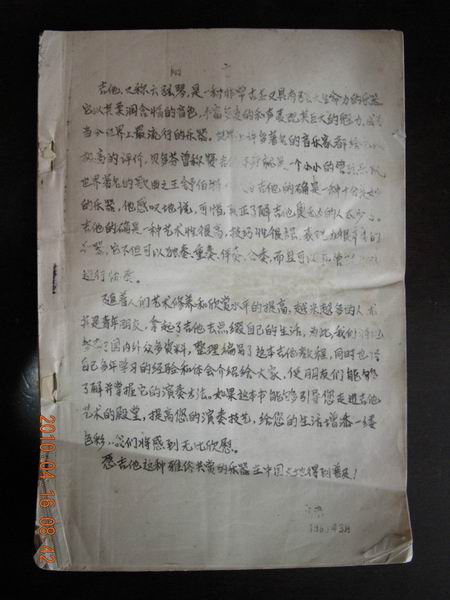 吉他,又称六弦琴,是一种非常古老又具有强大生命力的乐器
它以其柔润含情的音色,丰富多变的和声表现其巨大的魅力,成为
当今世界上最流行的乐器。世界上许多著名的音乐家都给
极高的评价,贝多芬曾称赞吉他 就是一个小小的管弦乐队
世界著名的歌曲之王舒伯特 吉他的确是一种十分
的乐器,他感叹地说,可惜,真正了解吉他奥 的人太少
吉他的确是一种艺术性很高,技巧性很强,表现力很丰富的
乐器,它不但可以独奏、重奏、伴奏、合奏,而且可以
进行协奏。
随着人们艺术修养和欣赏水平的提高,越来越多的人尤
其是青年朋友,拿起了吉他去点缀自己的生活。为此,我们
参考了国内外众多资料,整理编写了这本吉他教程,同时也将
自己多年学习的经验和体会介绍给大家,使朋友们能够
了解并掌握它的演奏方法。如果这本书能够引导您走进吉他
艺术的殿堂,提高您的演奏技艺,给您的生活增添一缕
色彩,我们将感到无比欣慰。
愿吉他这种雅俗共赏的乐器在中国大地得到普及!
2010 04 16 08:42